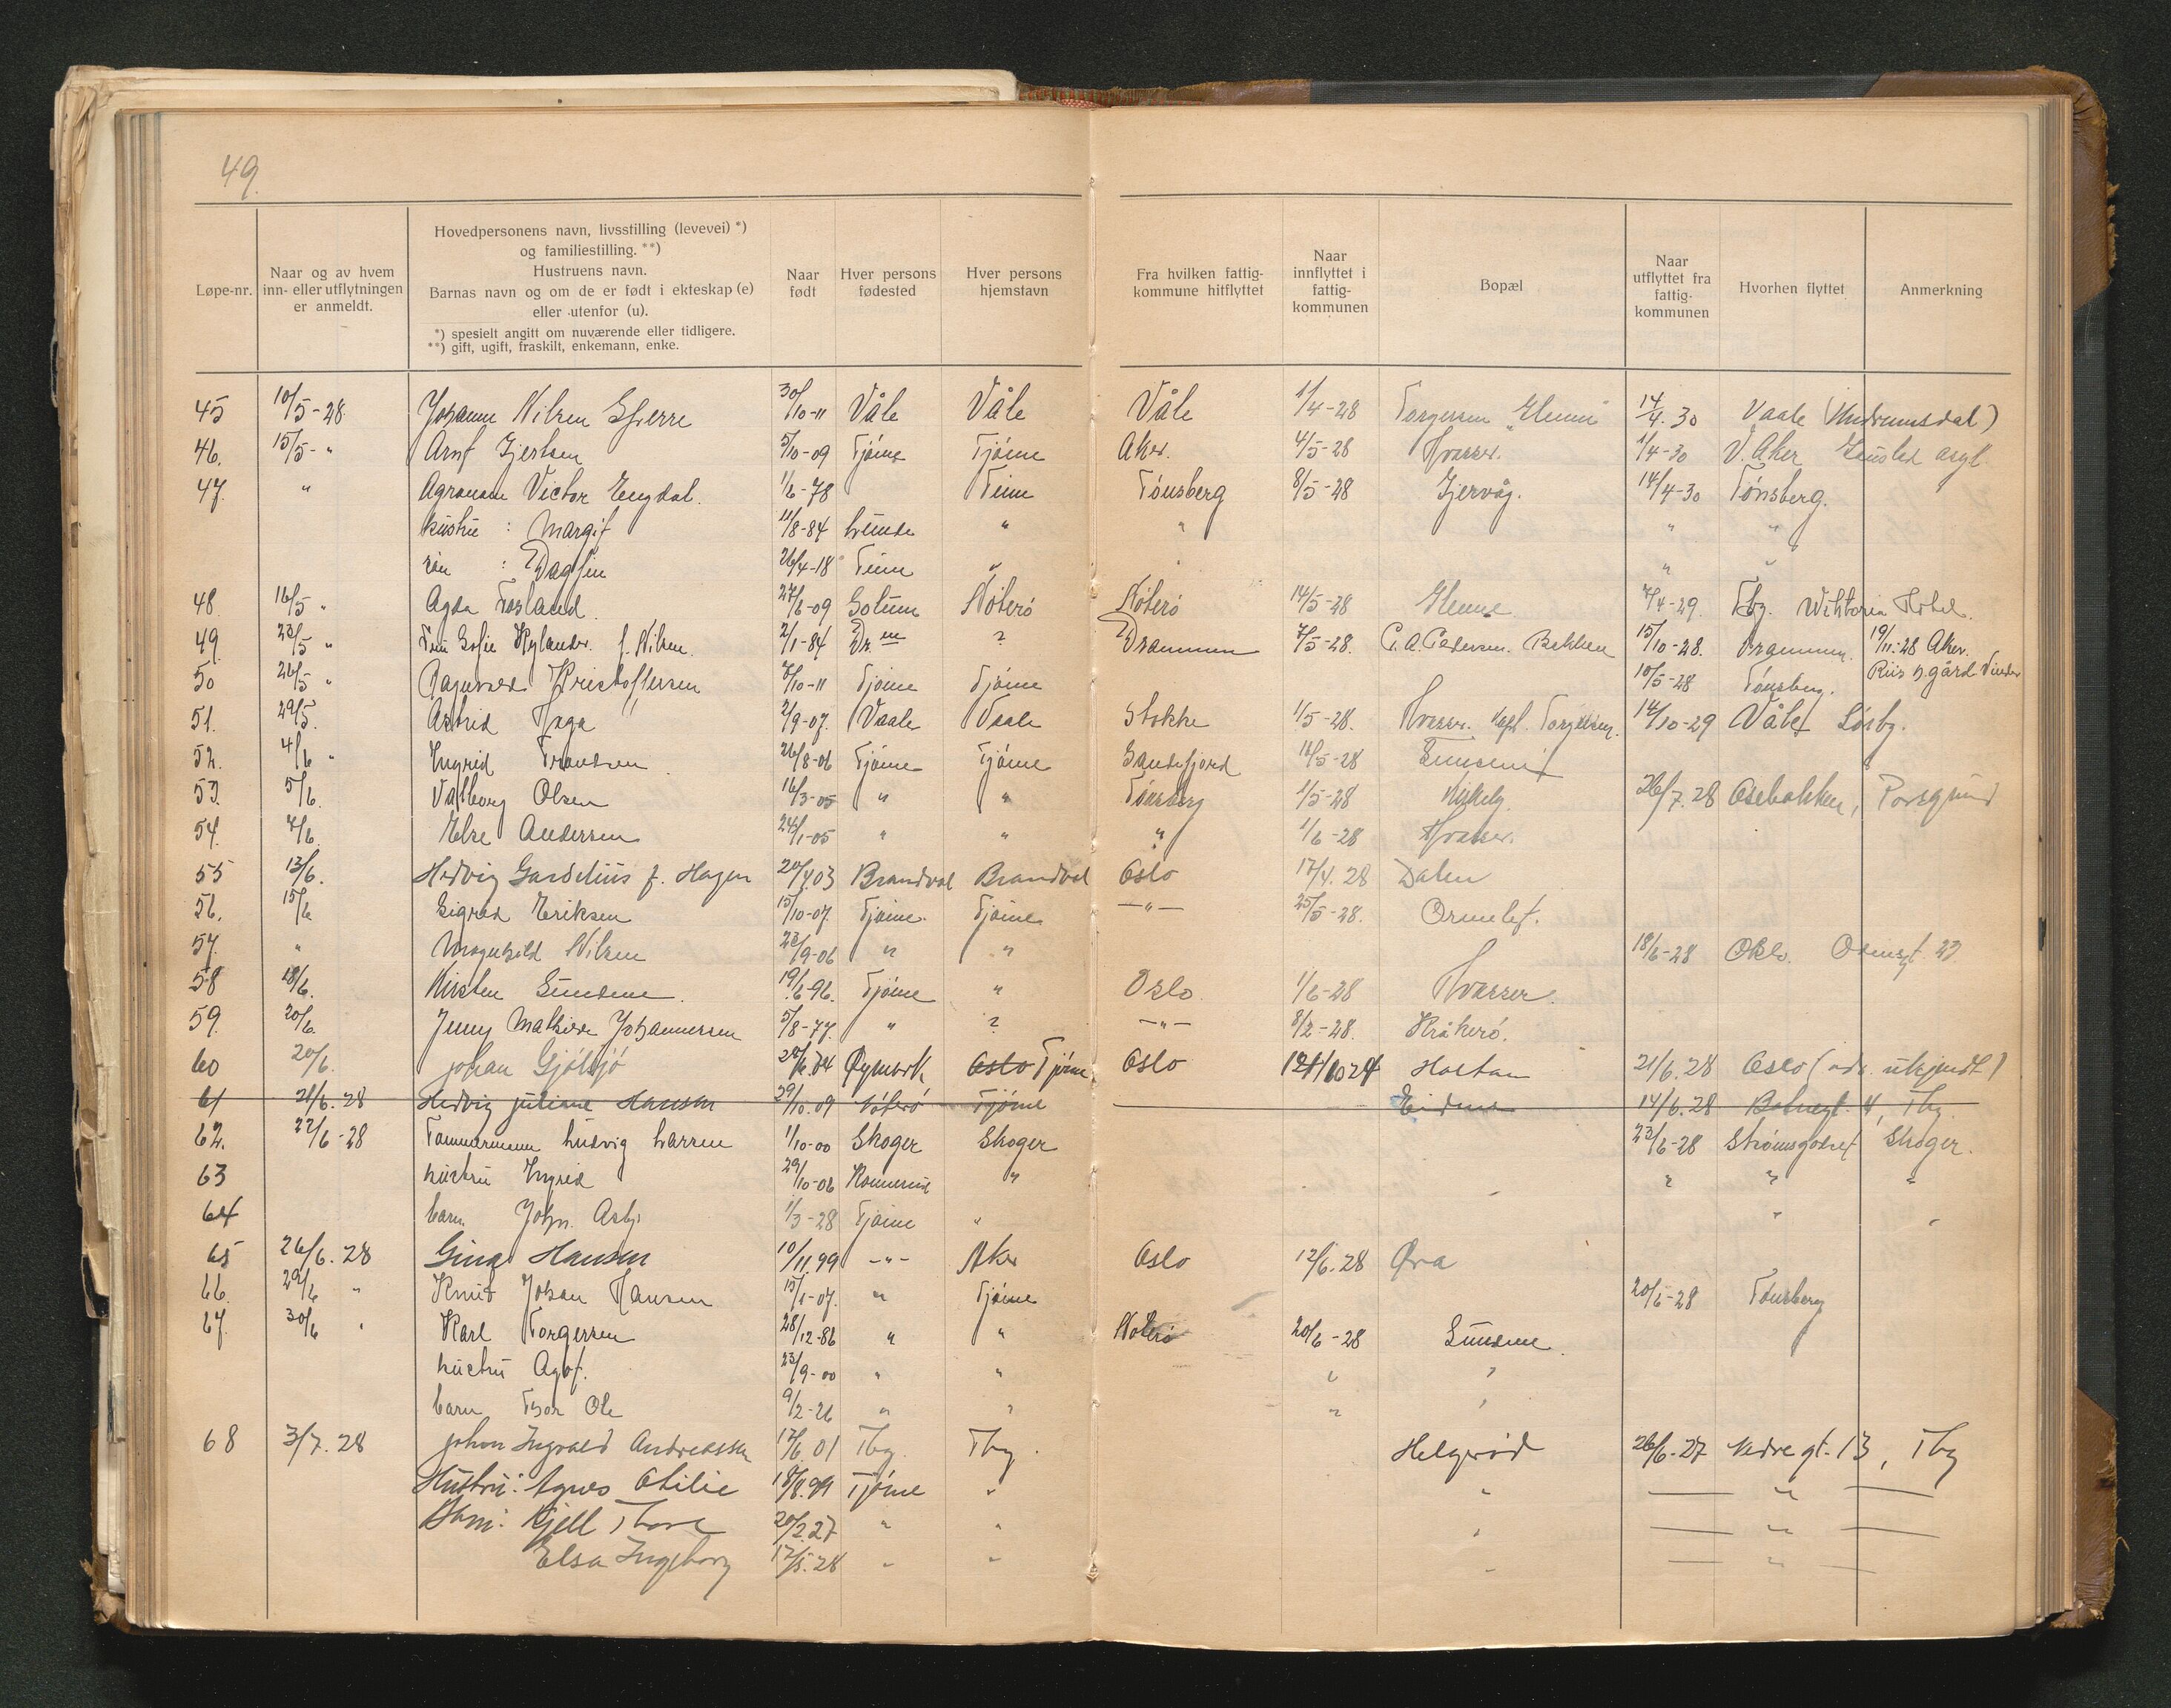 49.
Løpe-nr.
Naar og av hvem
inn- eller utflytningen
er anmeldt.
Hovedpersonens navn, livsstilling (levevei) *)
og familiestilling. **)
Hustruens navn.
Barnas navn og om de er født i ekteskap (e)
eller utenfor (u).
*) spesielt angitt om nuværende eller tidligere.
**) gift, ugift, fraskilt, enkemann, enke.
Naar
født
Hver persons
fødested
Hver persons
hjemstavn
Fra hvilken fattig-
kommune hitflyttet
Naar
innflyttet i
fattig-
kommunen
Bopæl
Naar
utflyttet fra
fattig-
kommunen
Hvorhen flyttet
Anmerkning
45 10/5-28 Johanne Nilsen 30/10-11 Våle Våle Våle 1/4-28 Torgersen 14/4.30 Vaale (Undrumsdal)
46. 15/5- " Arnt Gjertsen 5/10-09 Tjöme Tjöme Aker. 4/5-28 Hvasser. 1/4-30 V. Aker
47. " Agronom Victor Engdal. 1/6-78 Tönsberg 8/5-28 Gjervåg. 14/4-30 Tönsberg.
hustru : Margit 11/8-84 " " " "
sön : Dagfin 26/4-18 " " " "
48. 16/5 " Agda Forland. 27/6-09 Solum Nöterö Nöterö 14/5-28 7/4-29. Tbg. Wiktoria Hotel.
49. 23/5 " Sofie Nylander. f. Nilsen. 2/1-84 Dr.en ? Drammen 7/5-28. C. A. Pedersen. Bakken 15/10-28. Drammen. 19/11-28 Aker.
50 26/5 " Ragnvald Kristoffersen 7/10-11 Tjöme Tjöme 10/5-28 Tönsberg. Riis h.gård Vinder
51. 29/5. Astrid Haga 2/9-07. Vaale Vaale Stokke 1/5-28. Hvasser. 14/10-29 Våle
52. 4/6 " Ingrid Frantsen 26/8-06 Tjöme Tjöme Sandefjord 16/5-28
53. 5/6. Valborg Olsen 16/3-05 " " Tönsberg 1/5-28 26/7.28 Osebakken, Porsgrund
54. 7/6. Else Andersen 24/1-05 " " " 1/6-28 Hvasser.
55 13/6. Hedvig Gardelius f. Hagen 20/4.03 Brandval Brandval Oslo 17/4.28 Dalen
56. 15/6 Sigrid Eriksen 15/10-07. Tjöme. Tjöme - " - 25/5-28. Ormelet.
57. " Magnhild Nilsen 23/9-06 " " 18/6-28 Oslo.
58 18/6. Kirsten Sundene. 19/6-96. Tjöme " Oslo. 1/6-28 Hvasser.
59. 20/6 Jenny Mathilde Johannessen 5/8-77. " ? - " - 8/2-28. Kråkerö.
60 20/6. Johan Gjølsjø Øymark Oslo Tjöme Oslo Holtan 21/6.28 Oslo (adr. ukjendt)
61 21/6.28 Hedvig Juliane Hansen 29/10.09 Nøterø Tjøme Eidene 14/6.28 4, Tbg.
62. 22/6-28 Tømmermann Ludvig Larsen 1/10-00 Skoger Skoger 23/6-28 Strömsgodset Skoger.
63 hustru Ingrid 29/10-06 " " " "
64 barn John Asbj. 1/3-28 Tjöme " " "
65 26/6.28 Gina Hansen 10/11.99 - " - Aker Oslo 12/6.28 Øra
66. 29/6 " Knut Johan Hansen 15/1-07. " Tjöme 20/6-28 Tönsberg
67. 30/6 " Karl Torgersen 28/12-86 " " Nöterö 20/6-28 Sundene.
hustru Agot. 23/9-00 " " " "
barn Thor Ole 9/2-26 " " " "
68 3/7.28 Johan Ingvald Andreassen 17/6.01 Tbg. Tbg. Helgerød 26/6-27 Nedre gt. 13, Tbg
Hustru: Agnes Otilie 18/8.99 Tjøme " " — " —
Barn: Kjell Thore 20/2.27 " " " — " —
Elsa Ingeborg 12/5.28 " " " — " —